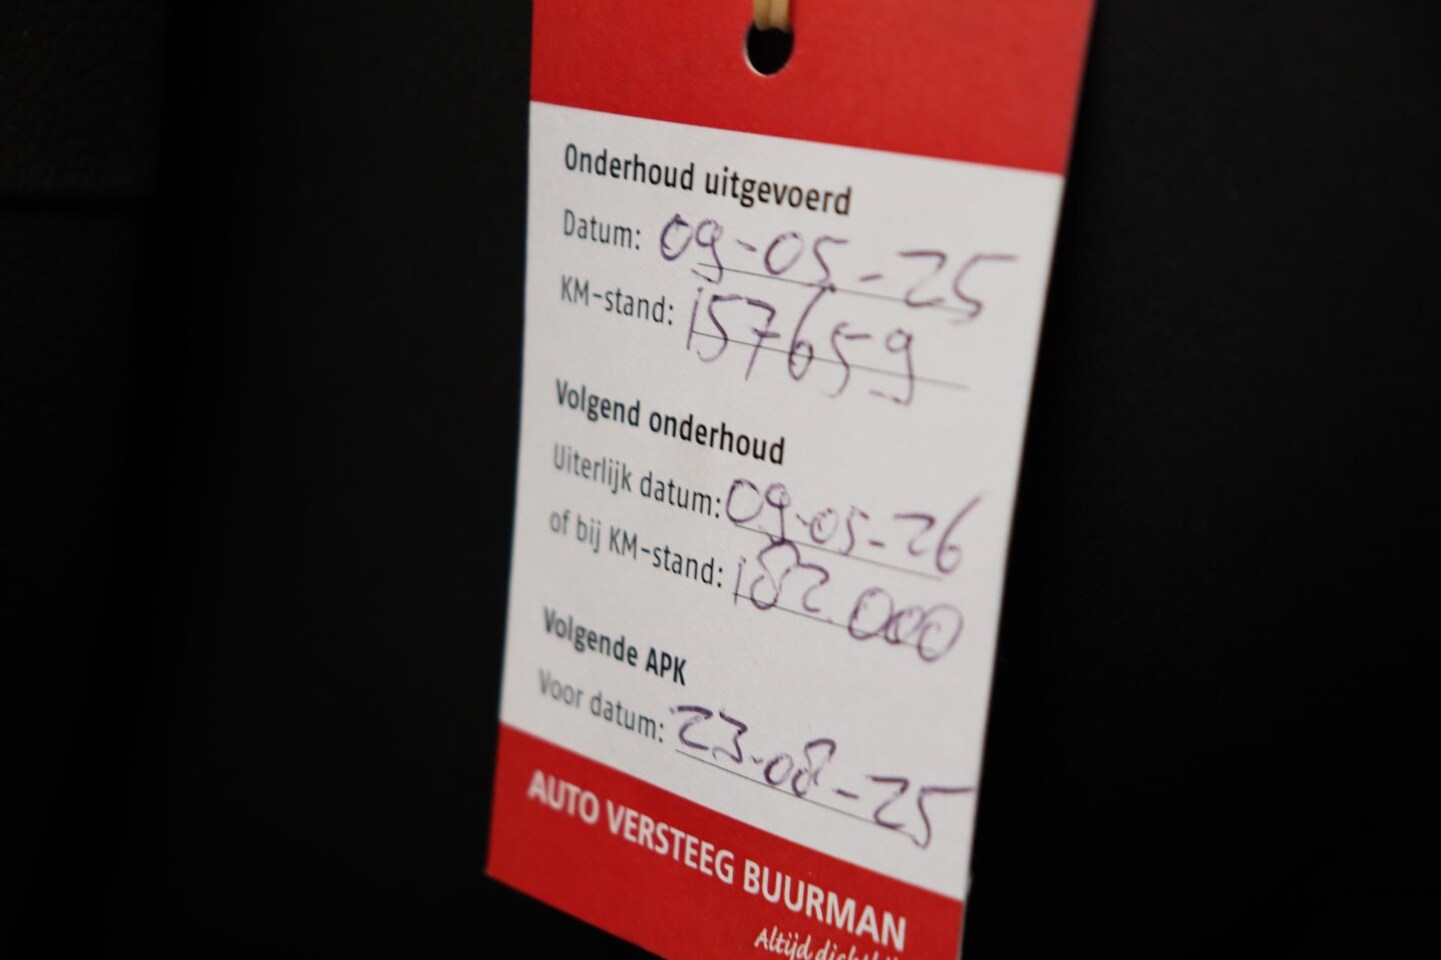 Onderhoud uitgevoerd
Datum: 09-05-25
KM-stand: 157659
Volgend onderhoud
Uiterlijk datum: 09-05-26
of bij KM-stand: 182.000
Volgende APK
Voor datum: 23-08-25
AUTO VERSTEEG BUURMAN
Altijd